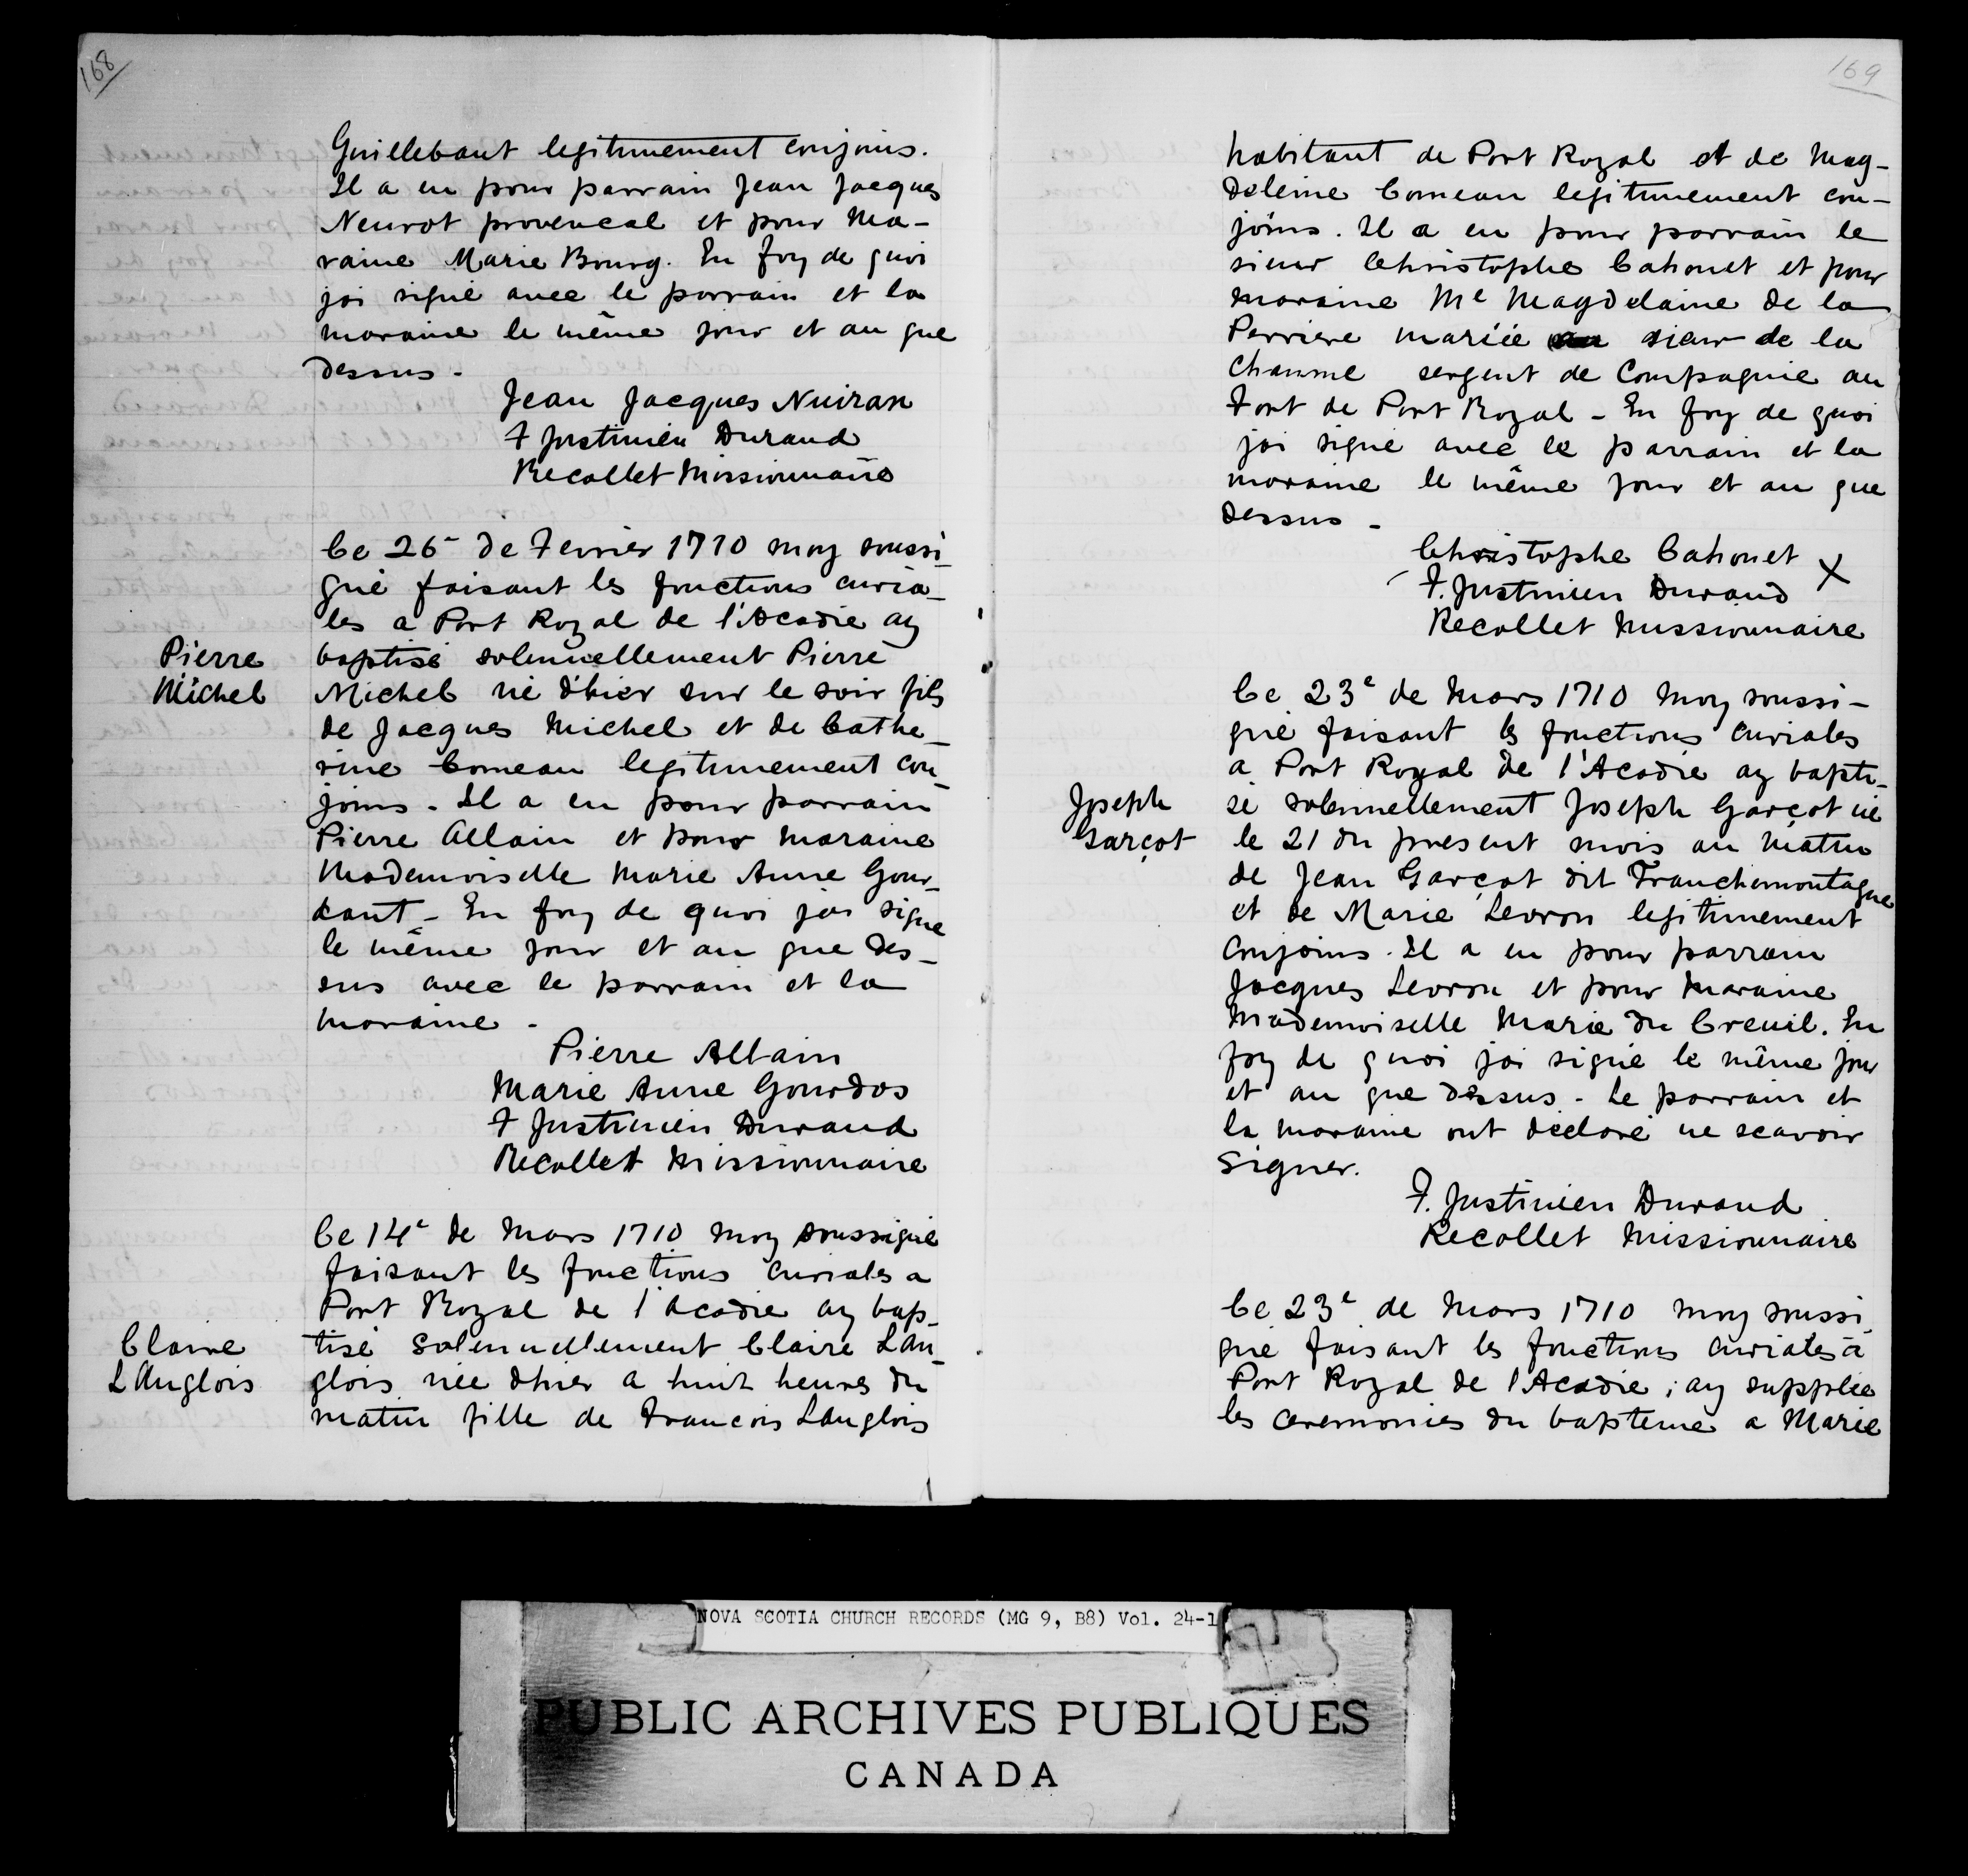 168
Guillebaut legitimement conjoins.
Il a eu pour parrain Jean Jacques
Neurot provencal et pour Ma-
raine Marie Bourg. En foy de quoi
jai signé avec le parrain et la
maraine le même jour et an que
dessus.
Jean Jacques Nuiran
F Justinien Durand
Recollet Missionnaire
Ce 26 de Fevrier 1710 moy soussi-
gné faisant les fonctions curia-
les a Port Royal de l'Acadie ay
Pierre
Michel
baptisé solennellement Pierre
Michel né d'hier sur le soir fils
de Jacques Michel et de Cathe-
rine Comeau legitimement con-
joins. Il a eu pour parrain
Pierre Allain et pour maraine
Mademoiselle Marie Anne Gour-
daut - En foy de quoi jai signe
le même jour et an que des-
sus avec le parrain et la
maraine -
Pierre Allain
Marie Anne Gourdos
F Justinien Durand
Recollet Missionnaire
Ce 14e de Mars 1710 moy soussigné
faisant les fonctions curiales a
Port Royal de l'Acadie ay bap-
Claire
LAnglois
tisé solennellement Claire LAn-
glois née d'hier a huit heures du
matin fille de Francois LAnglois
169
habitant de Port Royal et de Mag-
deleine Comeau legitimement con-
joins. Il a eu pour parrain le
sieur Christophe Cahouet et pour
maraine Me Magdelaine de la
Perriere mariée sieur de la
Chaume sergent de Compagnie au
Fort de Port Royal - En foy de quoi
jai signe avec le parrain et la
maraine le même jour et an que
dessus -
Christophe Cahouet X
F. Justinien Durand
Recollet Missionnaire
Ce 23e de Mars 1710 moy soussi-
gné faisant les fonctions curiales
a Port Royal de l'Acadie ay bapti-
Joseph
Garçot
sé solennellement Joseph Garçot né
le 21 du present mois au matin
de Jean Garçot dit Franchemontagne
et de Marie Levron legitimement
conjoins. Il a eu pour parrain
Jacques Levron et pour Maraine
Mademoiselle Marie du Breuil. En
foy de quoi jai signé le même jour
et an que dessus - Le parrain et
la maraine ont déclaré ne scavoir
signer.
F. Justinien Durand
Recollet Missionnaire
Ce 23e de Mars 1710 moy soussi
gné faisant les fonctions curiales à
Port Royal de l'Acadie, ay supplée
les ceremonies du bapteme a Marie
NOVA SCOTIA CHURCH RECORDS (MG 9, B8) Vol. 24-1
PUBLIC ARCHIVES PUBLIQUES
CANADA